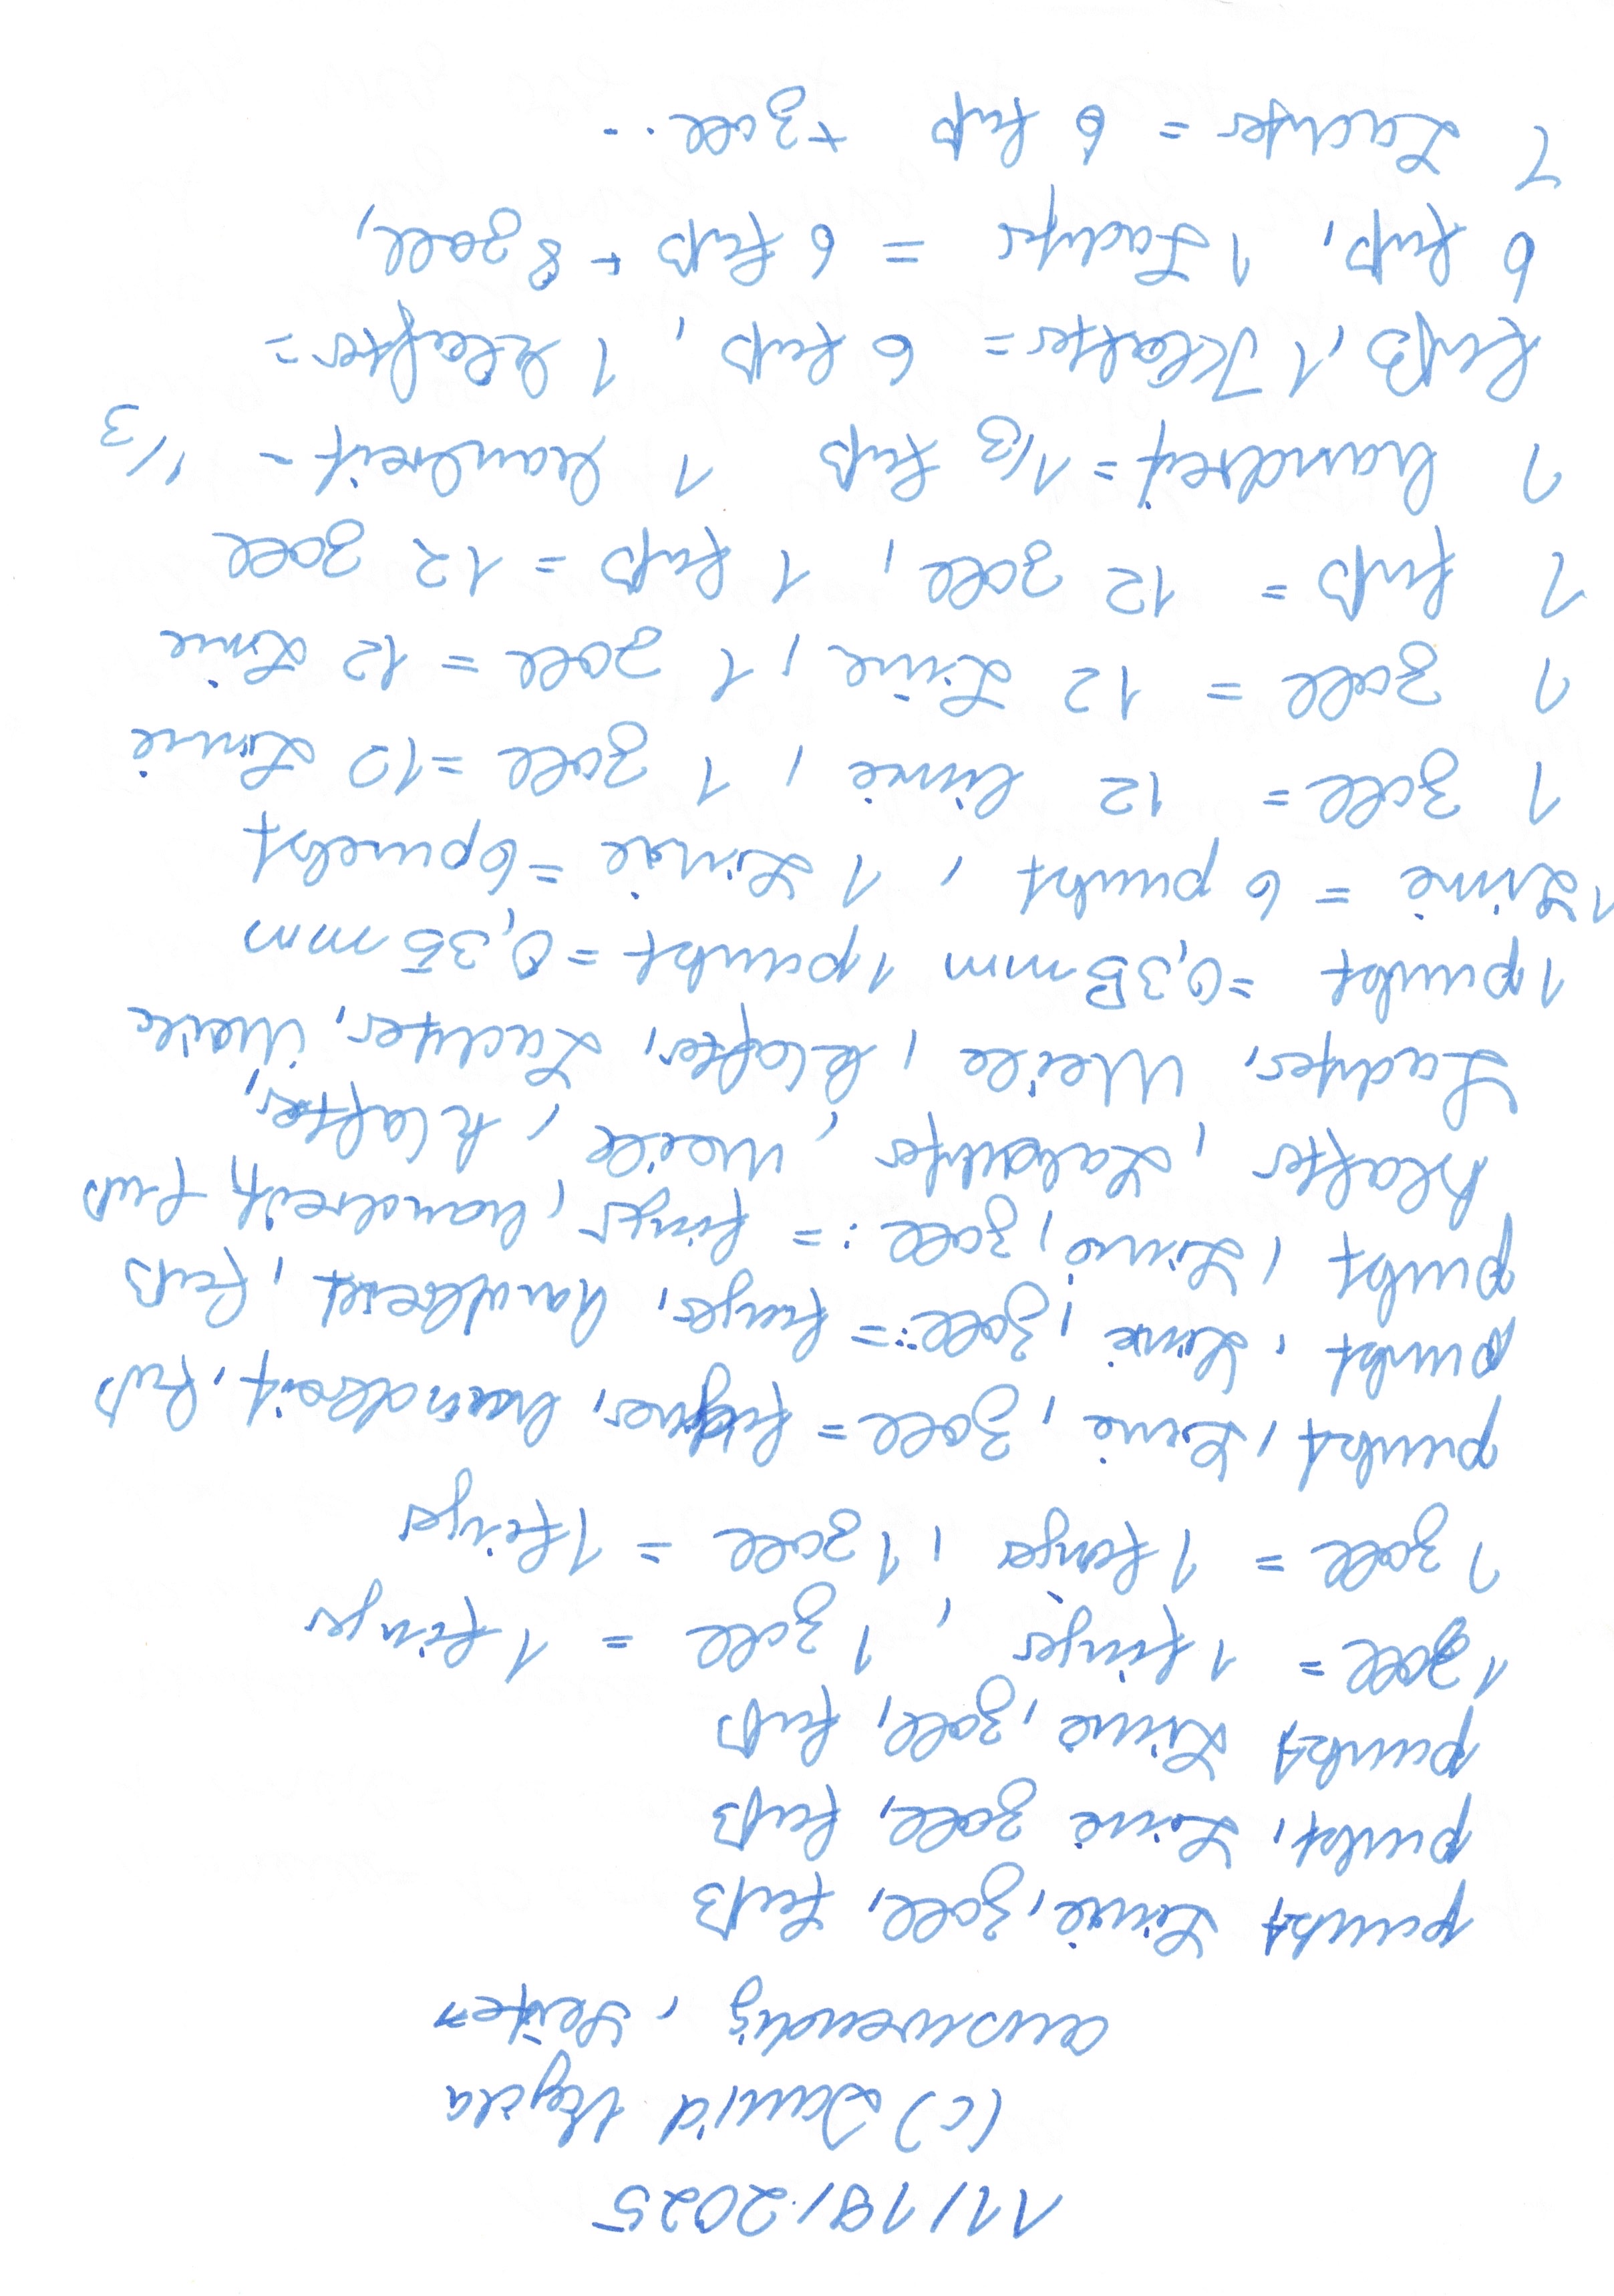 11/19/2025
(c) David Vajda
auswendig, Seite
punkt Linie, zoll, fuß
punkt, Linie zoll, fuß
punkt Linie, zoll, fuß
1 zoll = 1 finger, 1 zoll = 1 finger
1 zoll = 1 finger, 1 zoll = 1 finger
punkt, Linie, zoll = handbreit, fuß
punkt, Linie, zoll := finger, handbreit, fuß
punkt, Linie, zoll := finger, handbreit, fuß
klafter, Lachter, Meile, klafter,
Lachter, Meile, klafter, Lachter, Meile
1 punkt = 0,35 mm 1 punkt = 0,35 mm
1 Linie = 6 punkt, 1 Linie = 6 punkt
1 zoll = 12 linie, 1 zoll = 12 Linie
1 zoll = 12 Linie, 1 zoll = 12 Linie
1 fuß = 12 zoll, 1 fuß = 12 zoll
1 handbreit = 1/3 fuß 1 handbreit - 1/3
fuß, 1 Klafter = 6 fuß, 1 klafter =
6 fuß, 1 Lachter = 6 fuß + 8 zoll,
1 Lachter = 6 fuß + zoll...